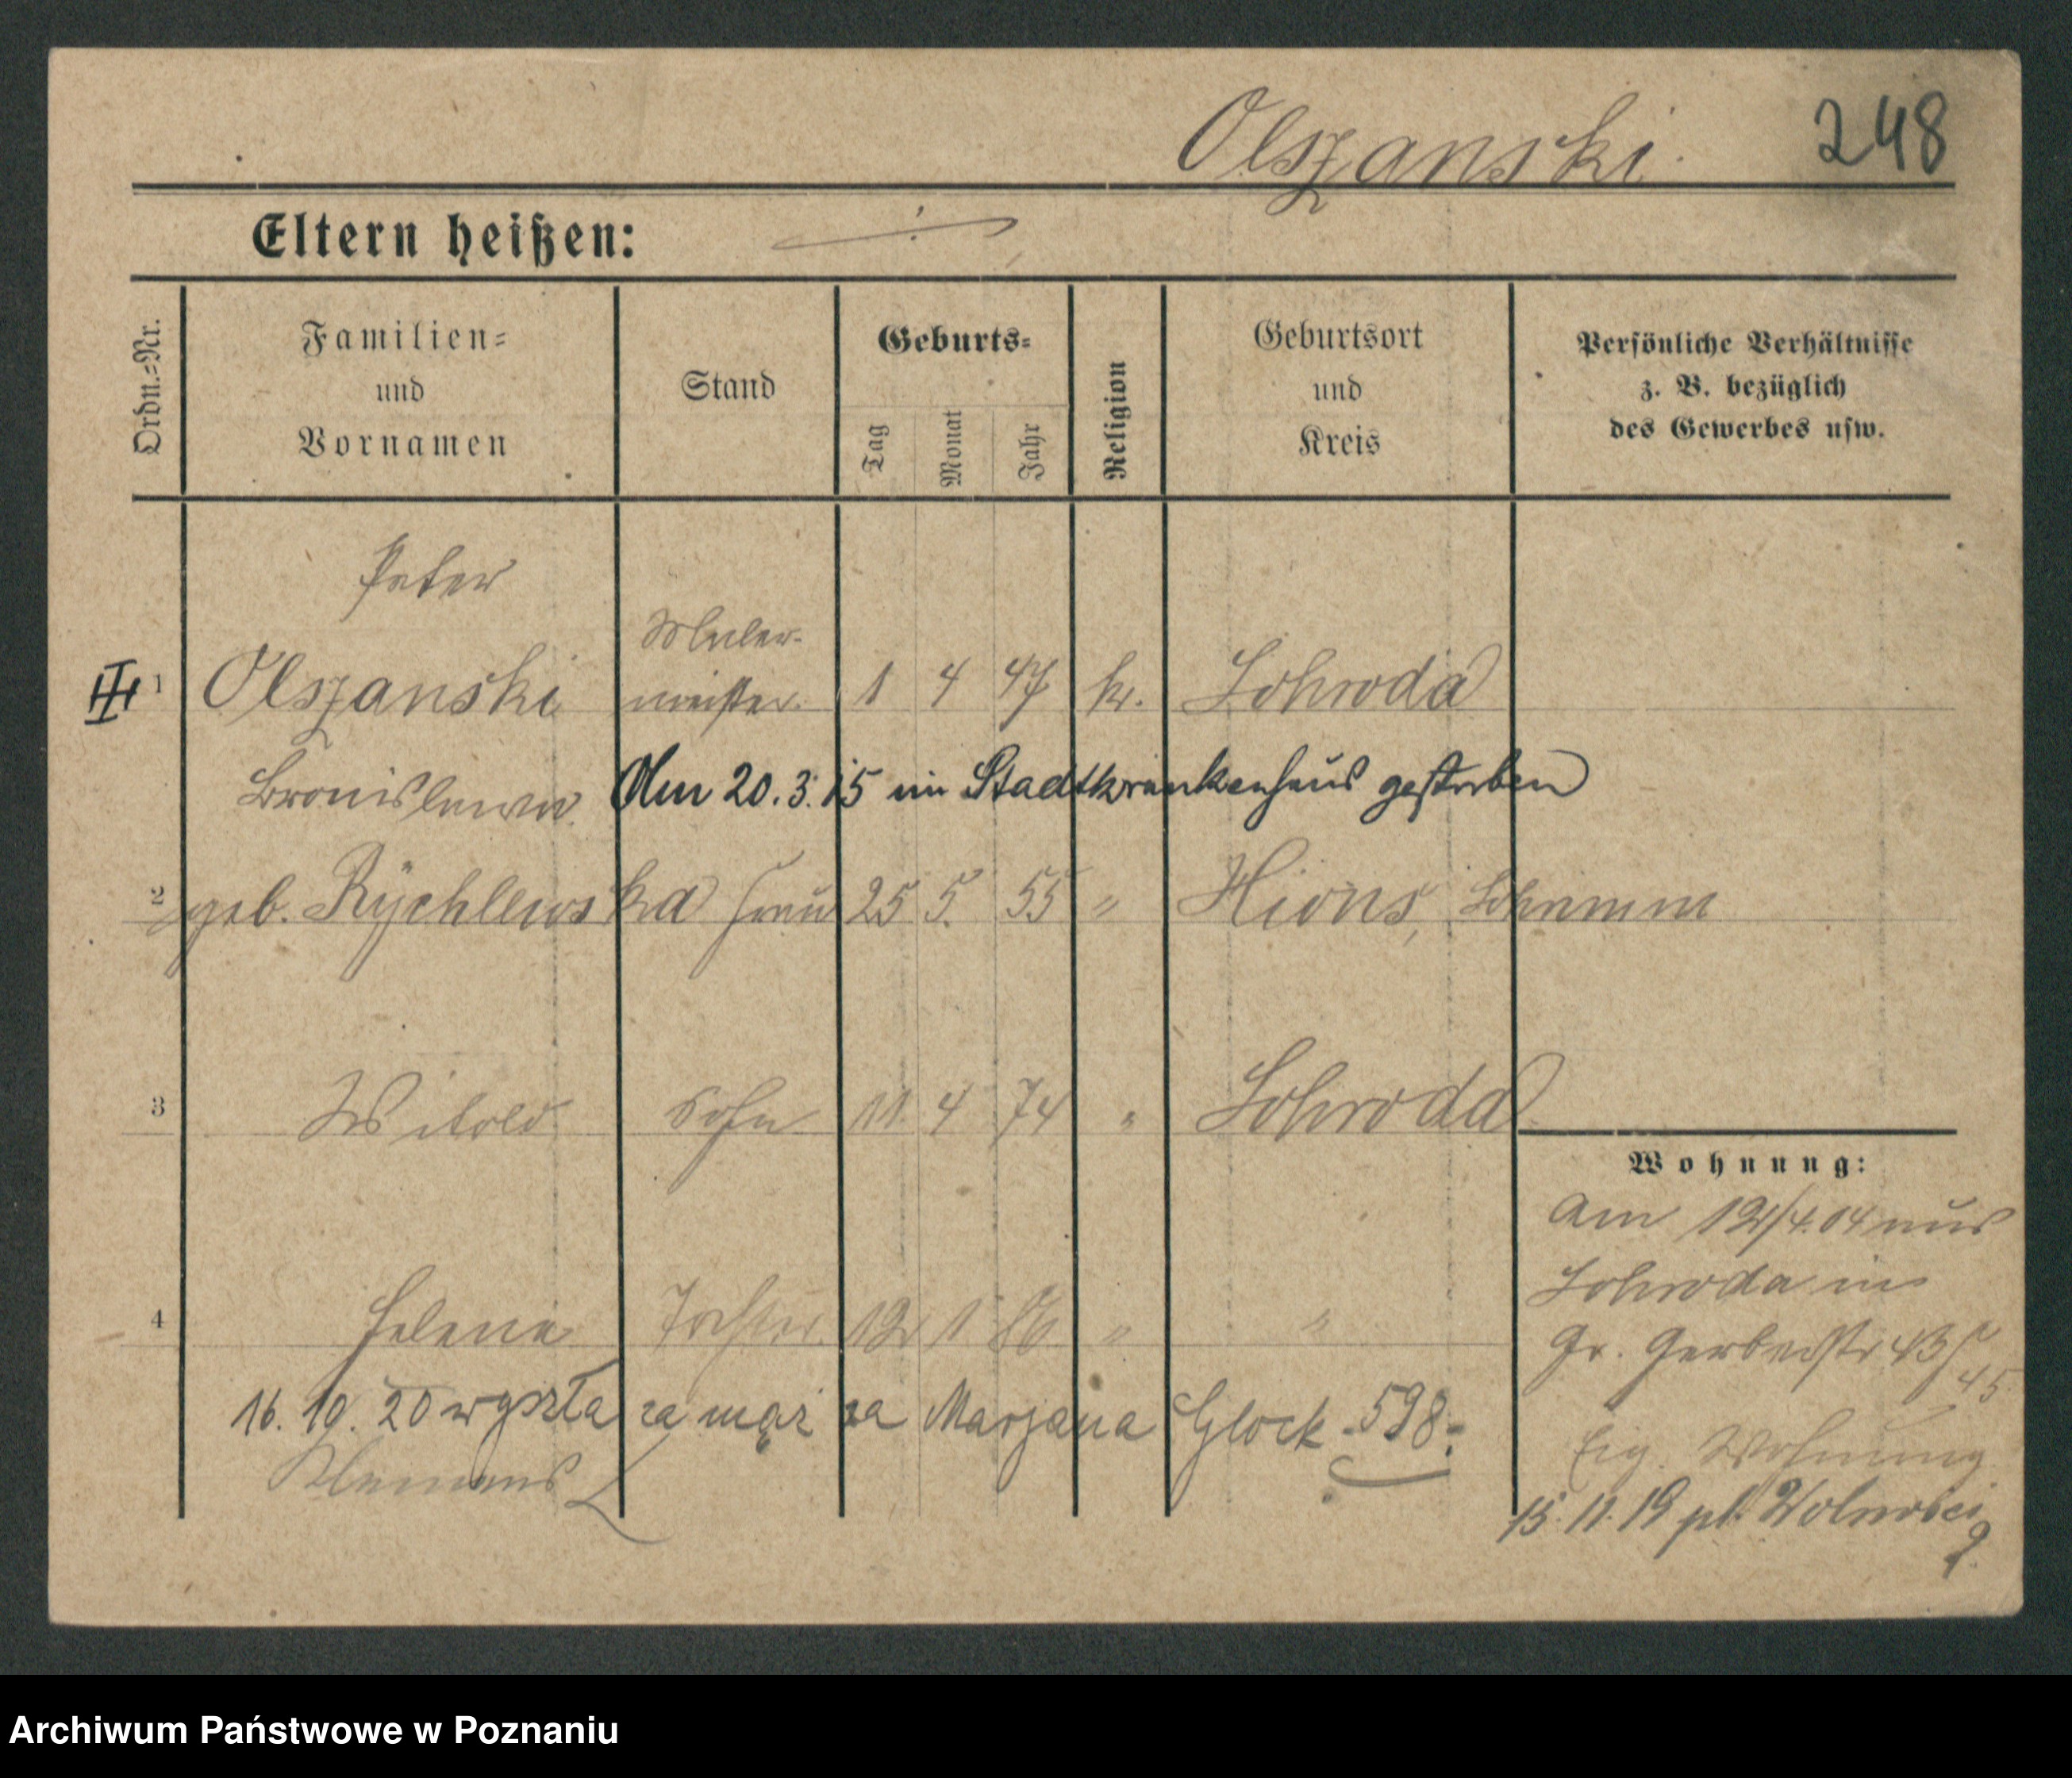 Olszanski.
248
Eltern heißen:
Ordn.-Nr.
Familien-
und
Vornamen
Stand
Geburts-
Tag
Monat
Jahr
Religion
Geburtsort
und
Kreis
Persönliche Verhältnisse
z. B. bezüglich
des Gewerbes usw.
Peter
Maler-
III 1 Olszanski meister. 1 4 47 k. Schroda
Bronislawa Am 20.3.15 im Stadtkrankenhaus gestorben
2 geb. Rychlewska Frau 25 5. 55 " Xions, Schrimm
3 Witold Sohn 11. 4 74 " Schroda
Wohnung:
Am 12/4.04 aus
Schroda in
4 Helena Tochter. 12 1 86 " "
Gr. Gerberstr 43/
45
16. 10. 20 wyszła za mąż za Marjana Glock -598-
Eig. Wohnung
Klemens
15. 11. 19 pl. Wolności
2.
Archiwum Państwowe w Poznaniu